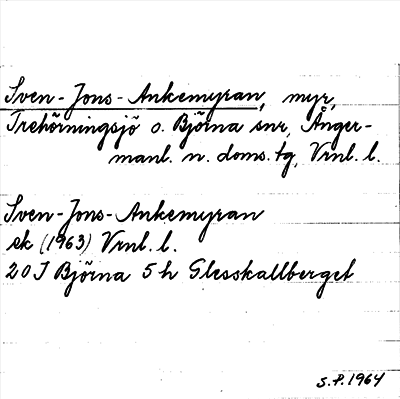 Sven-Jons-Ankemyran, myr,
Trehörningsjö o. Björna snr, Ånger-
manl. n. doms. tg, Vrnl. l.
Sven-Jons-Ankemyran
ek (1963) Vrnl. l.
20 J Björna 5 h Glesskallberget
S.P. 1964